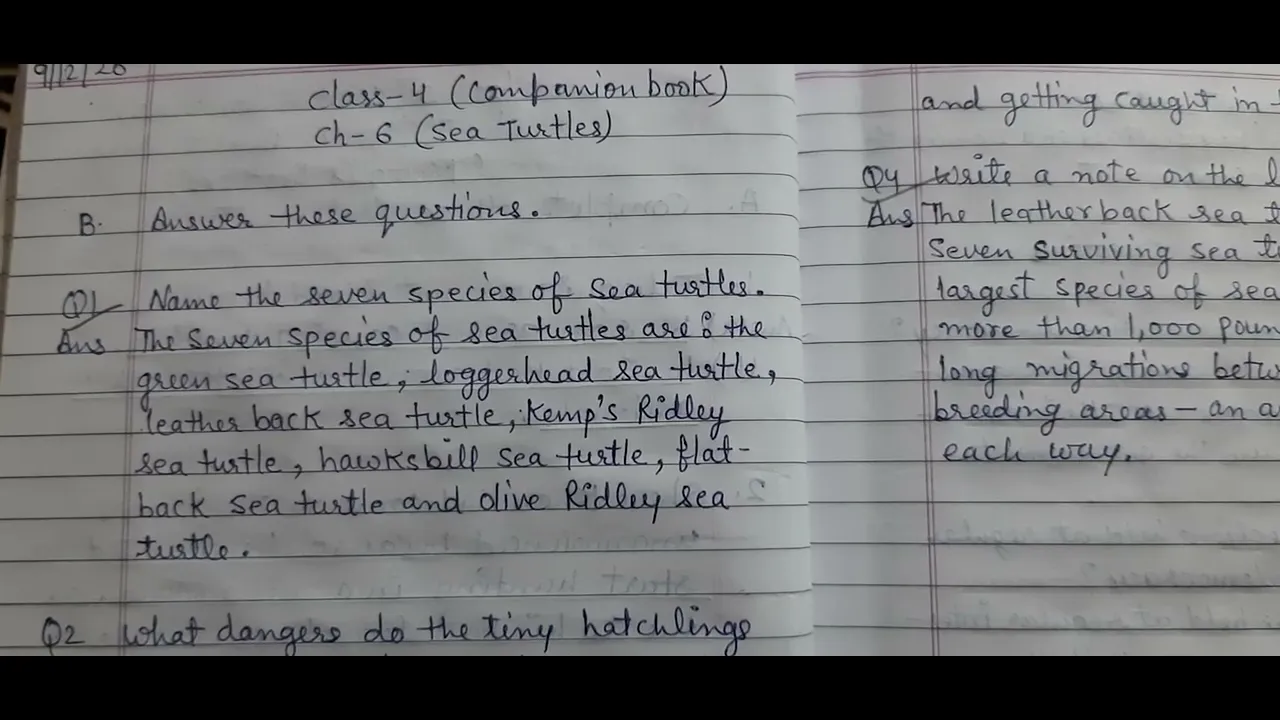 9/12/20
Class-4 (Companion book)
Ch-6 (Sea Turtles)
B. Answer these questions.
Q1 Name the seven species of Sea turtles.
Ans The Seven species of sea turtles are: the
green sea turtle, loggerhead sea turtle,
leatherback sea turtle, Kemp's Ridley
sea turtle, hawksbill sea turtle, flat-
back sea turtle and olive Ridley sea
turtle.
Q2 What dangers do the tiny hatchlings
and getting caught in
Q4 Write a note on the
Ans The leatherback sea
Seven surviving sea
largest species of sea
more than 1,000
long migrations
breeding areas - an
each way.